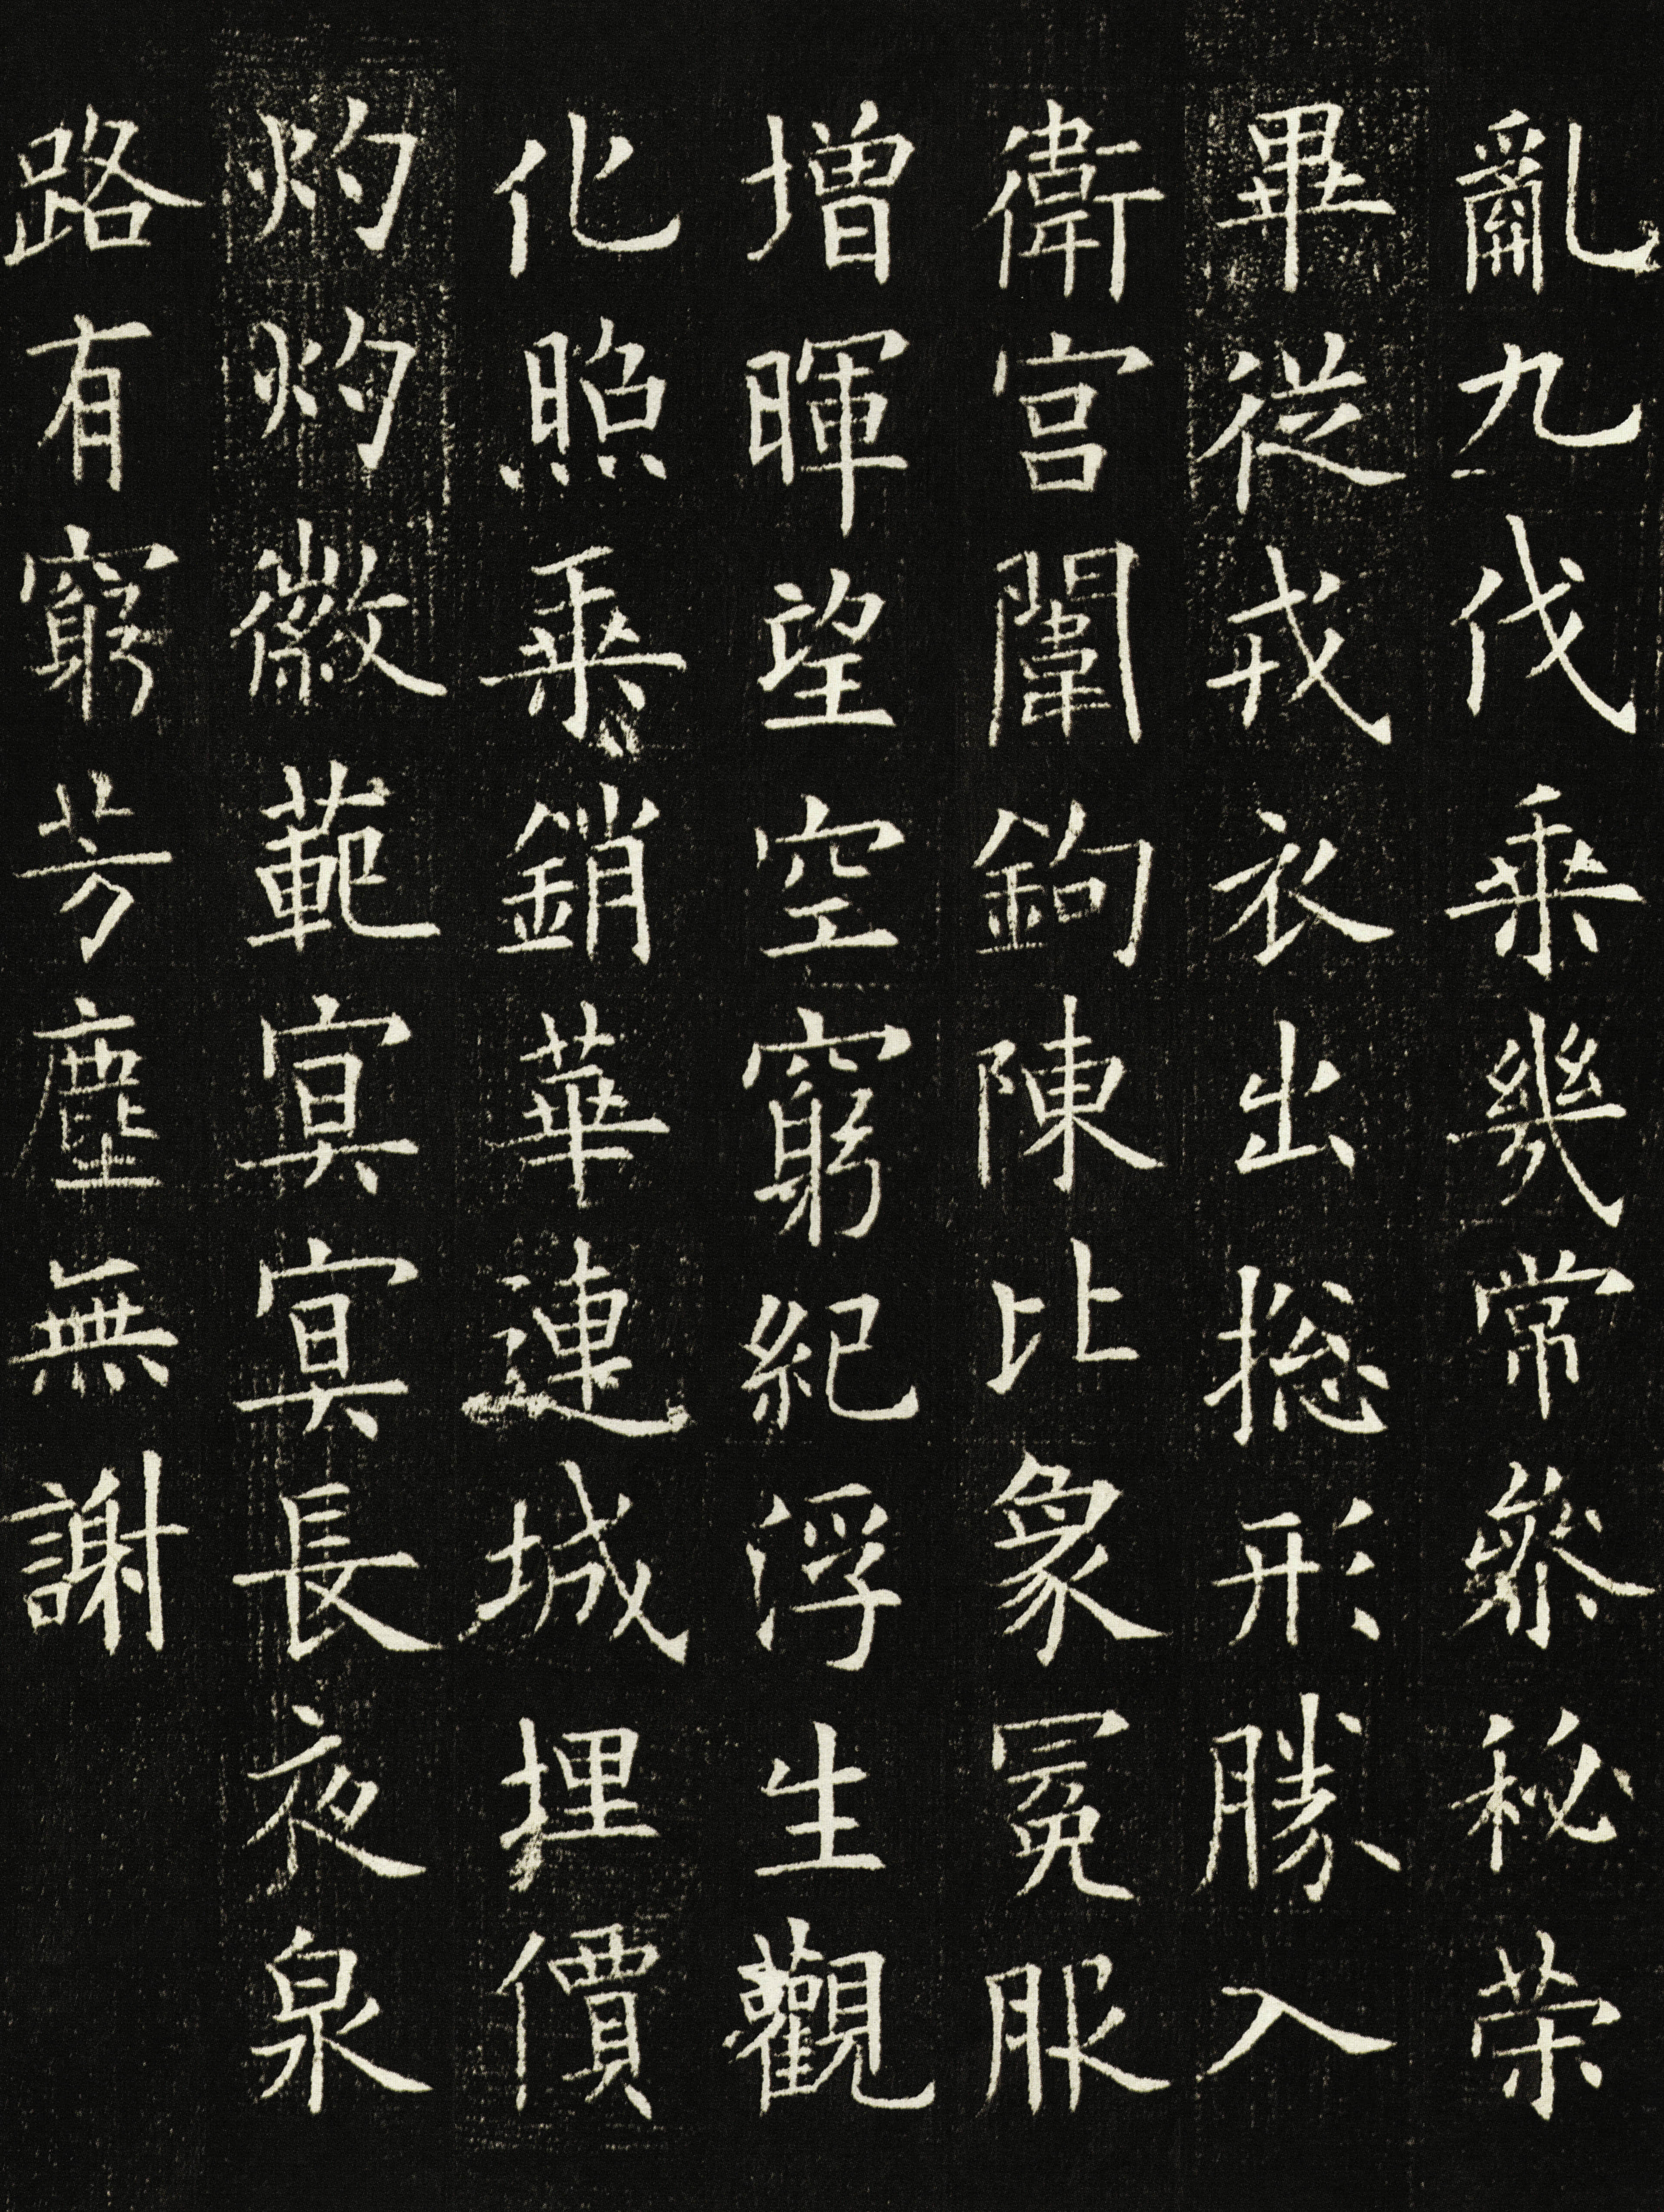 亂九伐乘幾常參秘荣
畢從戎衣出摠形勝入
衛宫闈鉤陳比象冕服
增暉望空窮紀浮生觀
化照乘銷華連城埋價
灼灼徽範冥冥長夜泉
路有窮芳塵無謝